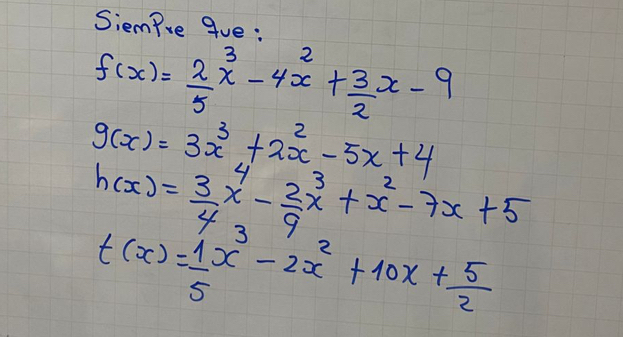 Siempre que:
f(x) = 2/5 x³ - 4x² + 3/2 x - 9
g(x) = 3x³ + 2x² - 5x + 4
h(x) = 3/4 x⁴ - 2/9 x³ + x² - 7x + 5
t(x) = 1/5 x³ - 2x² + 10x + 5/2